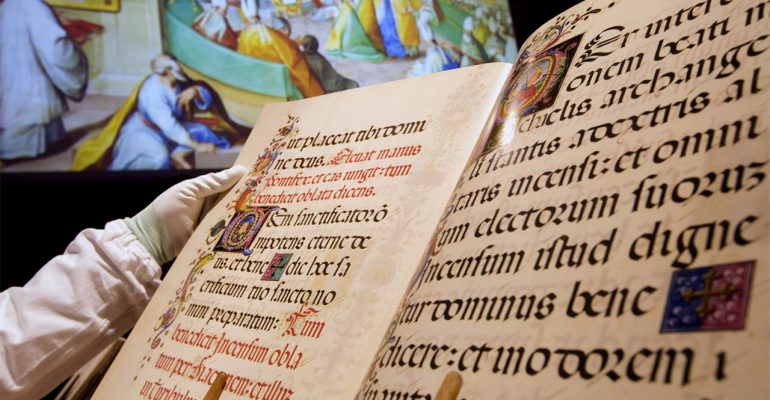 ut placeat tibi domi
ne deus. Eleuat manus
Pontifex et eas ungit: tum
benedicit oblata dicens.
Veni sanctificator o
mnipotens eterne de
us. et bene dic hoc sa
crificium tuo sancto no
mini preparatum: Tum
benedicit Incensum obla
tum per Diaconum
Per inter
onem beati mi
chaelis archange
li stantis a dextris al
taris incensi: et omni
um electorum suorum
Incensum istud digne
tur dominus bene
dicere: et in odorem